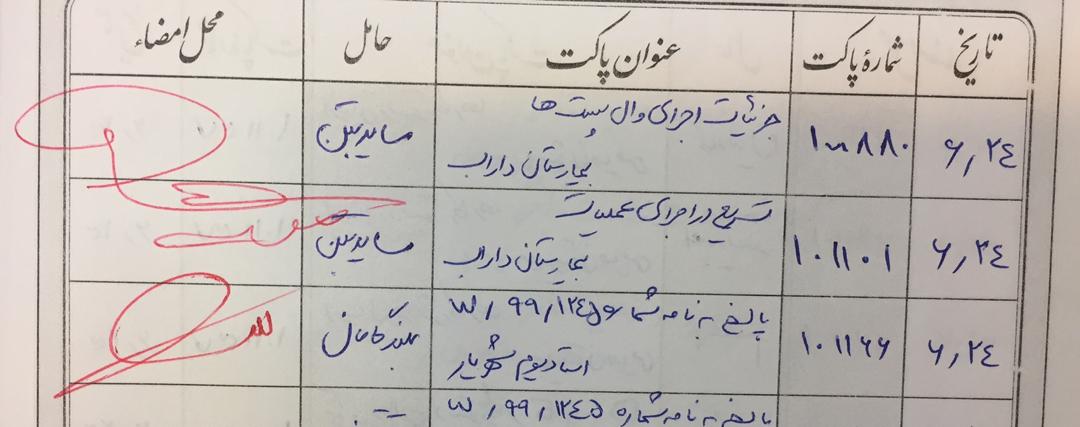 تاریخ شمارهٔ پاکت عنوان پاکت حامل محل امضاء
۶٫۲۴ ۱۰۸۸۰ جزئیات اجرای وال پست ها سایدبتن
بیمارستان داراب
۶٫۲۴ ۱۰۱۱۰۱ تسریع در اجرای عملیات سایدبتن
بیمارستان داراب
۶٫۲۴ ۱۰۱۱۶۶ پاسخ به نامه شما ۹۹٫۱۲۴۵۶٫س
استادیوم شهریار
پاسخ به نامه شماره ۹۹٫۱۲۴۵٫س